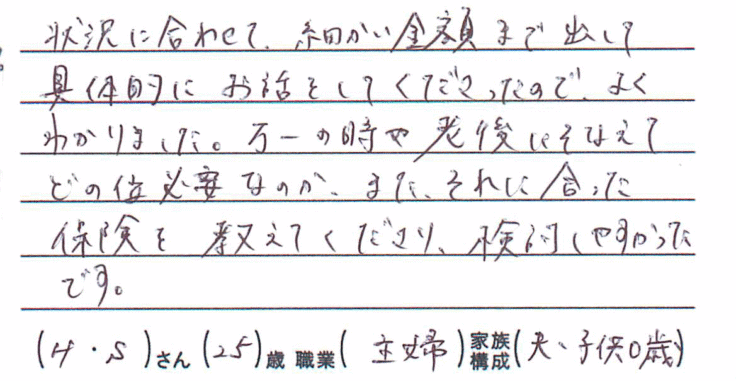 状況に合わせて、細かい金額まで出して
具体的にお話をしてくださったので、よく
わかりました。万一の時や老後にそなえて
どの位必要なのか、また、それに合った
保険を教えてくださり、検討しやすかった
です。
(H・S)さん(25)歳 職業(主婦)家族構成(夫、子供0歳)